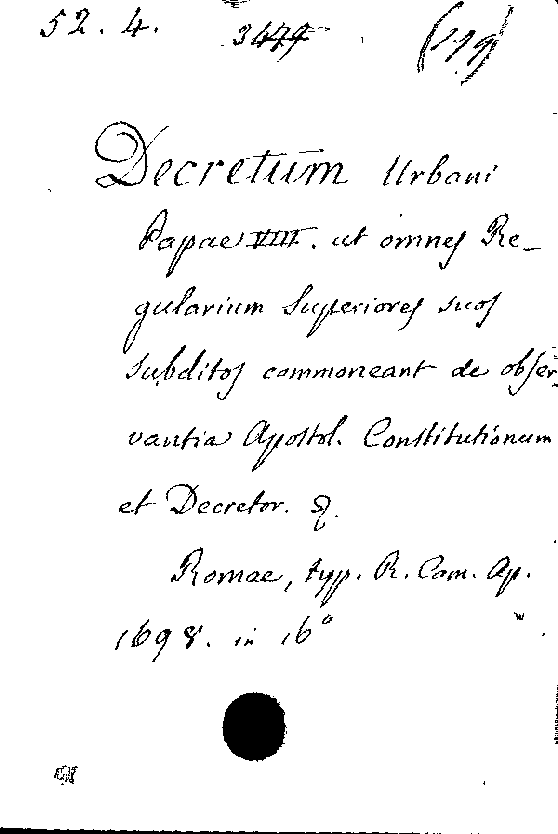 52. 4. 3477 (119)
Decretum Urbani
Papae VIII. ut omnes Re-
gularium Superiores suos
subditos commoneant de obser
vantia Apostol. Constitutionum
et Decretor.
Romae, typ. R. Cam. Ap.
1698. in 16°